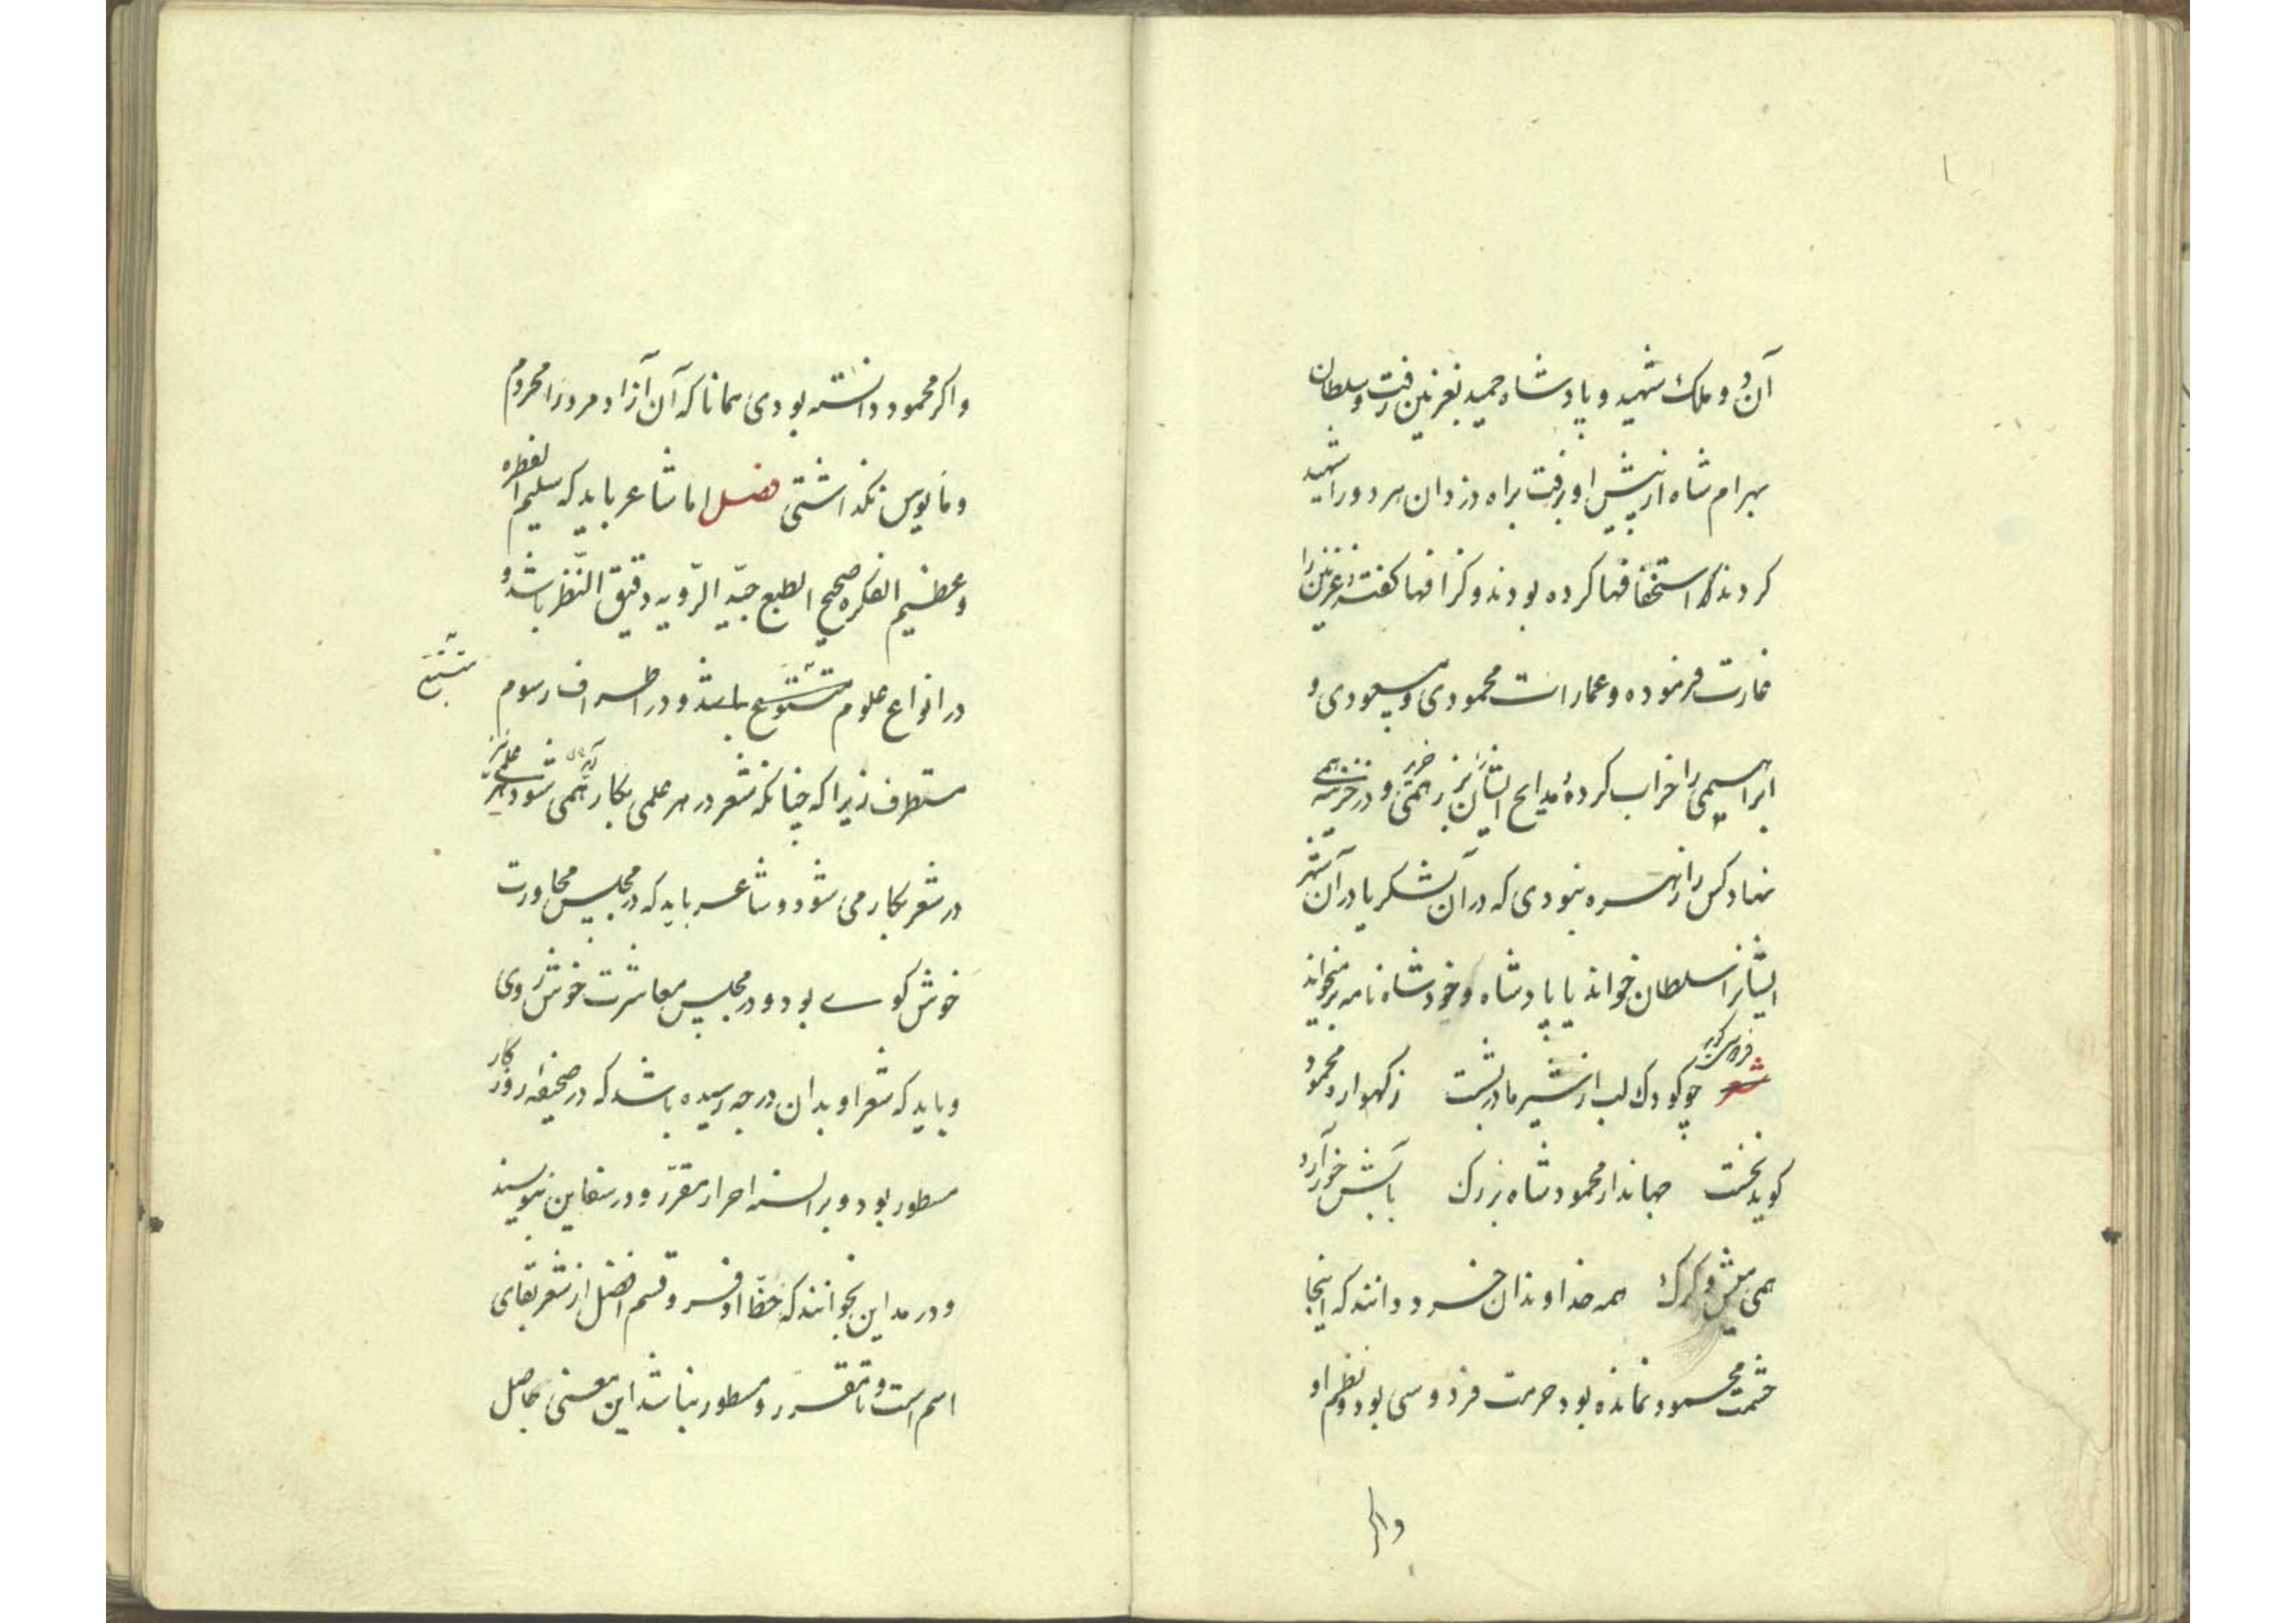 آن دو ملک شهید و پادشاه حمید بغزنین رفت و سلطان
بهرام شاه از پیش او برفت براه دزدان هر دو را شهید
کردند که استخفافها کرده بودند و گزافها گفته و غزنین را
غارت فرموده و عمارات محمودی و مسعودی و
ابراهیمی را خراب کرده و مدایح ایشان بزر همی خرید و در خزینه همی
نهاد کس را زهره نبودی که در آن لشکر یا در آن شهر
ایشانرا سلطان خواند یا پادشاه و خود شاه نامه بر میخواند
فردوسی گوید
شعر چو کودک لب از شیر مادر بشست ز گهواره محمود
گوید نخست جهاندار محمود شاه بزرگ بآبش خور آرد
همی میش و گرگ همه خداوندان خرد دانند که اینجا
حشمت محمود نمانده بود حرمت فردوسی بود و نظم او
واگر
واکر محمود دانسته بودی همانا که آن آزاد مرد را محروم
و مایوس نگذاشتی فصل اما شاعر باید که سلیم الفطره
و عظیم الفکره صحیح الطبع جید الرّویه دقیق النّظر باشد و
در انواع علوم متنوع باشد و در اطراف رسوم
مستطرف زیرا که چنانکه شعر در هر علمی بکار همی شود هر علمی نیز
در شعر بکار می شود و شاعر باید که در مجلس محاورت
خوش گوی بود و در مجلس معاشرت خوش روی
و باید که شعر او بدان درجه رسیده باشد که در صحیفه روزگار
مسطور بود و بر السنه احرار مقرّر و در سفاین بنویسند
و در مداین بخوانند که حظّ اوفر و قسم افضل از شعر بقای
اسم است و تا مقرر و مسطور نباشد این معنی بحاصل